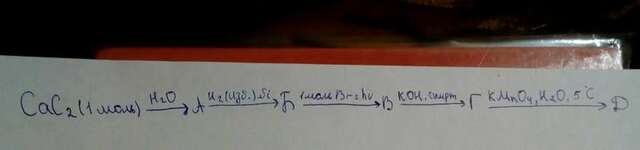 CaC2 (1 моль) H2O → А H2 (изб.) Ni → Б 1 моль Br2 hν → В KOH, спирт → Г KMnO4, H2O, 5°C → D